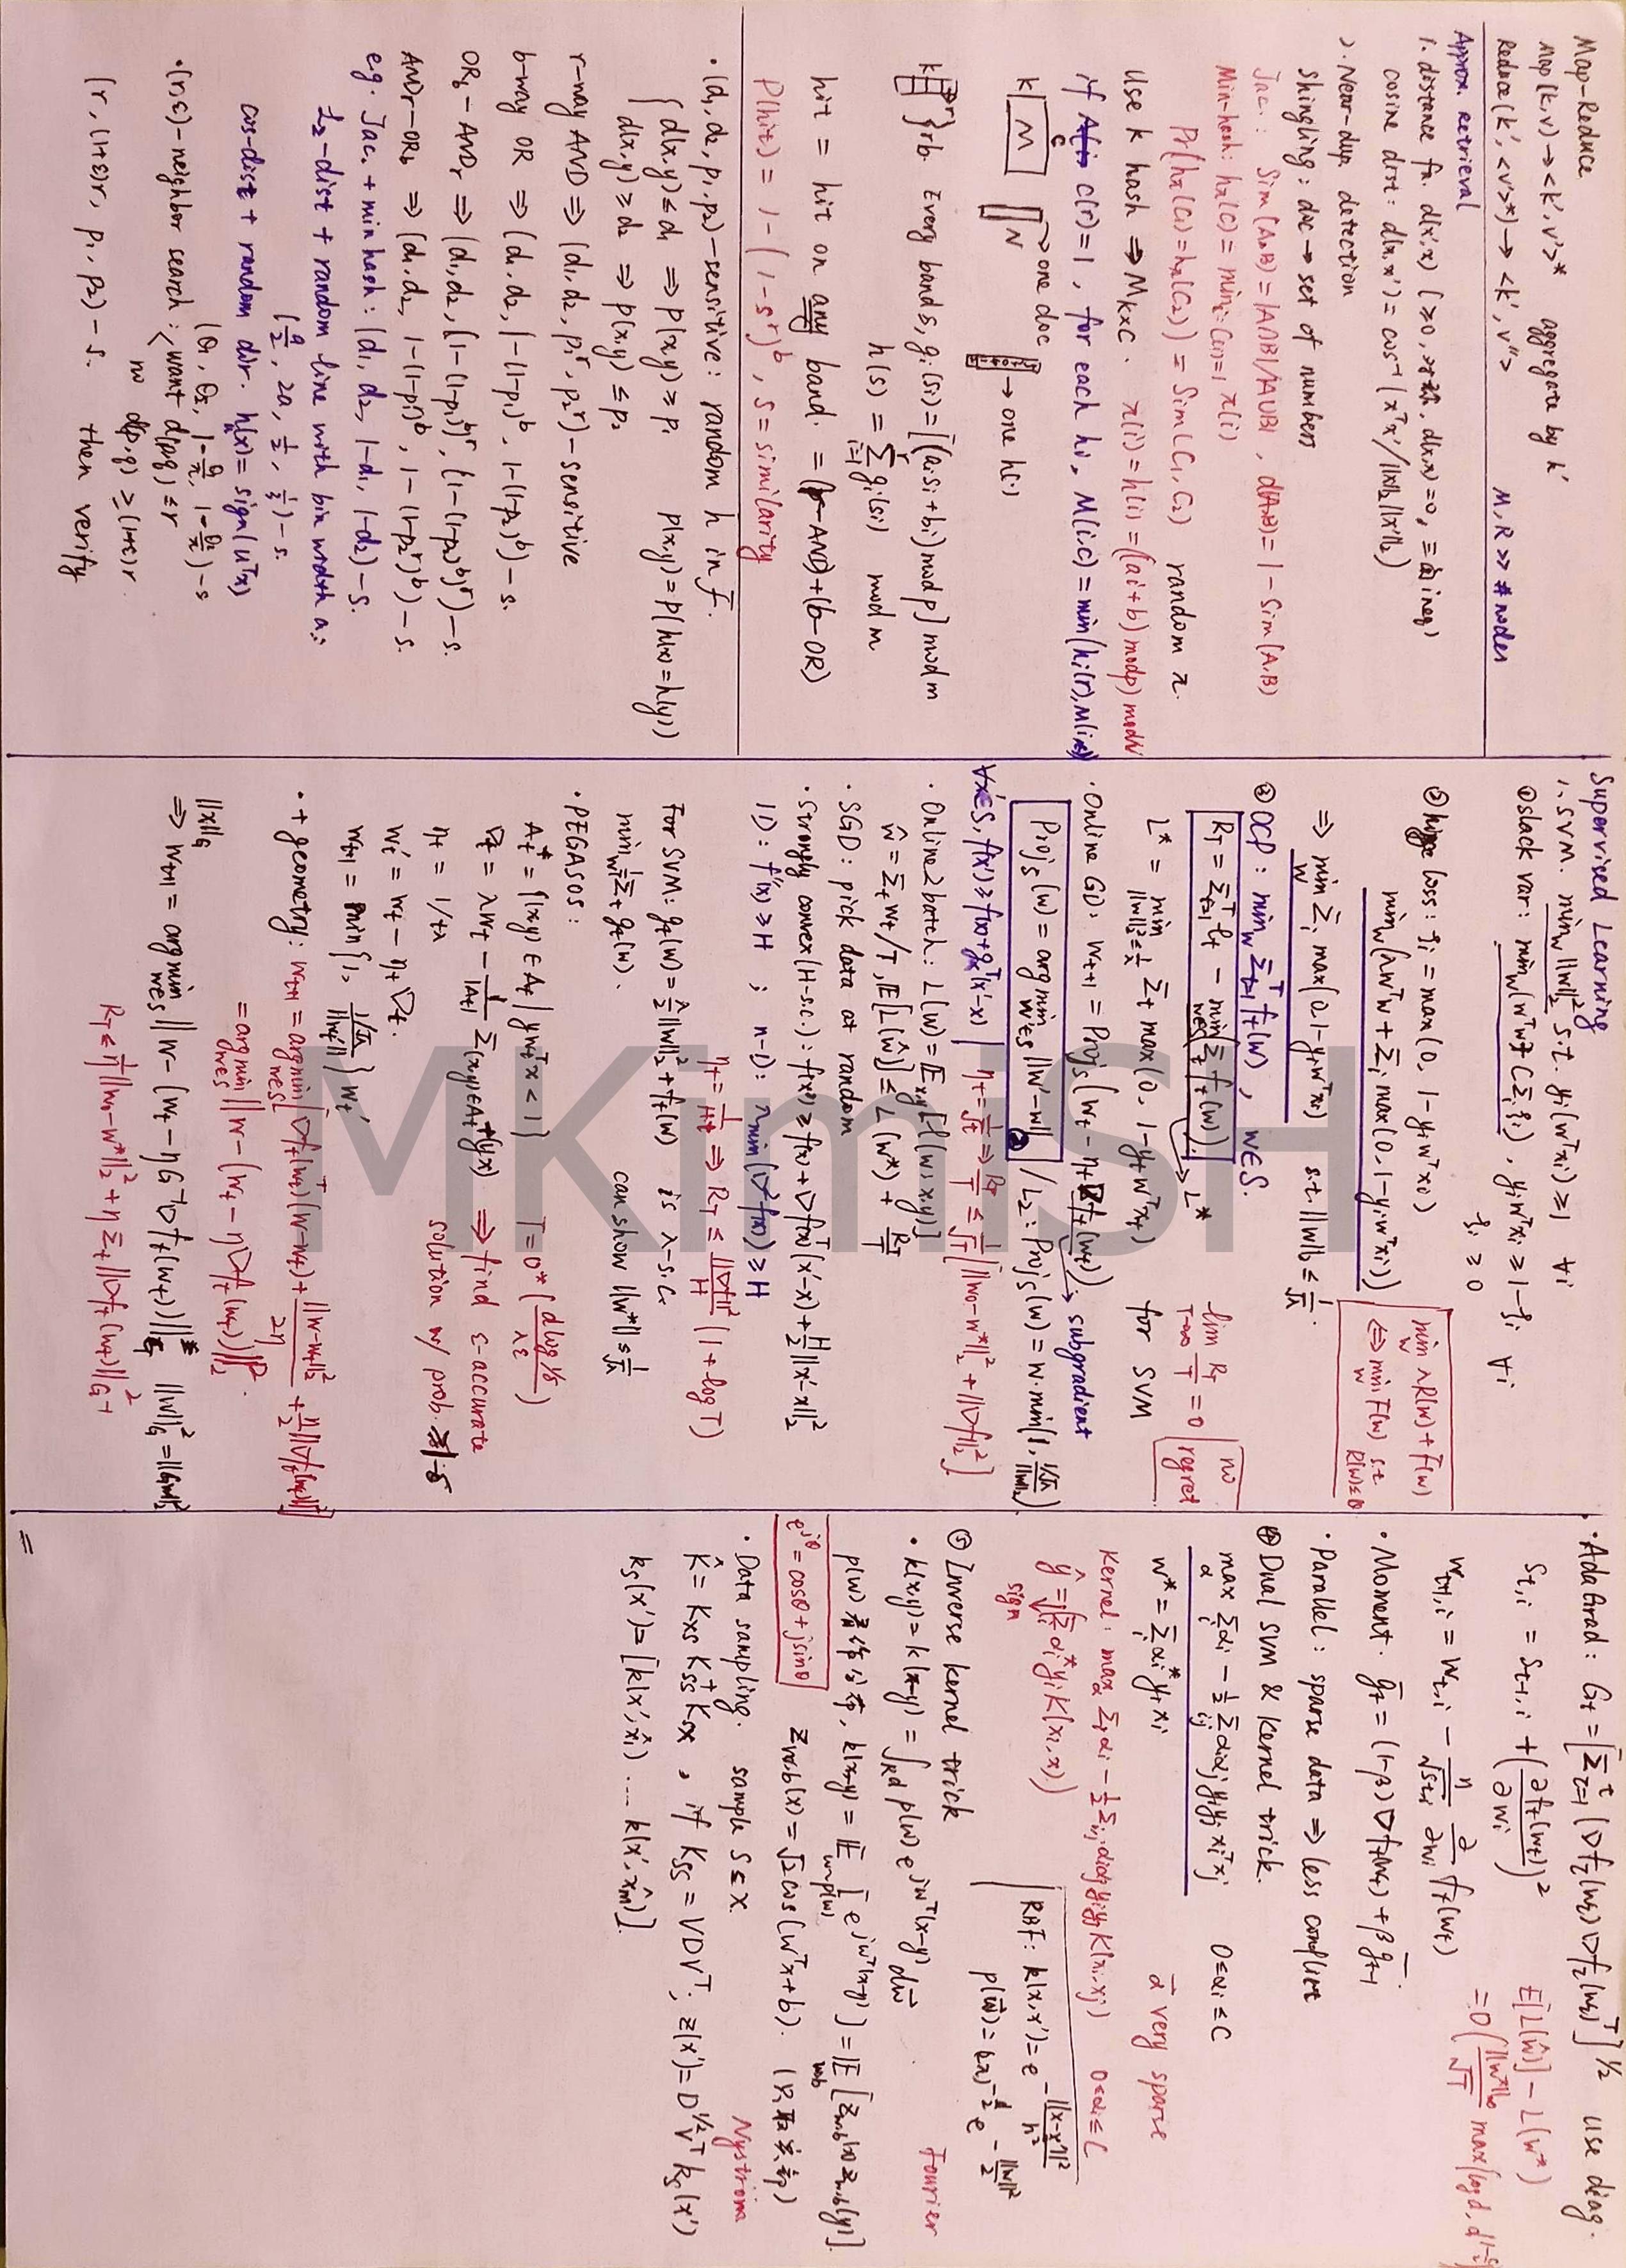 Map-Reduce
Map(k,v) → <k',v'>* aggregate by k'
Reduce(k',<v'>*) → <k',v''> M,R >> #nodes
Approx. retrieval
1. distance fn. d(x',x) (≥0, d(x,x)=0, ineq)
cosine dist: d(x,x') = cos⁻¹(xᵀx'/||x||₂||x'||₂)
2. Near-dup. detection
Shingling: doc → set of numbers
Jac.: Sim(A,B) = |A∩B|/|A∪B|, d(A,B) = 1 - Sim(A,B)
Min-hash: hπ(C) = min_{i:C(i)=1} π(i)
Pr(hπ(C₁)=hπ(C₂)) = Sim(C₁,C₂) random π.
Use k hash ⇒ M_{k×C}. π(i) = h(i) = (ai+b) mod p) mod N
if C(r)=1, for each hᵢ, M(i,c) = min(hᵢ(r), M(i,c))
k M C
N → one doc
→ one h(·)
k r } r·b. Every band s, gᵢ(sᵢ) = [(aᵢsᵢ+bᵢ) mod p] mod m
h(s) = Σᵢ₌₁ʳ gᵢ(sᵢ) mod m
hit = hit on any band. = (r-AND)+(b-OR)
P(hit) = 1-(1-sʳ)ᵇ, s = similarity
· (d₁,d₂,p₁,p₂)-sensitive: random h in F.
{ d(x,y) ≤ d₁ ⇒ p(x,y) ≥ p₁ p(x,y) = p(h(x)=h(y))
d(x,y) ≥ d₂ ⇒ p(x,y) ≤ p₂
r-way AND ⇒ (d₁,d₂,p₁ʳ,p₂ʳ)-sensitive
b-way OR ⇒ (d₁,d₂,1-(1-p₁)ᵇ,1-(1-p₂)ᵇ)-s.
OR_b - AND_r ⇒ (d₁,d₂,(1-(1-p₁)ᵇ)ʳ,(1-(1-p₂)ᵇ)ʳ)-s.
AND_r - OR_b ⇒ (d₁,d₂,1-(1-p₁ʳ)ᵇ,1-(1-p₂ʳ)ᵇ)-s.
eg. Jac. + minhash: (d₁,d₂,1-d₁,1-d₂)-s.
ℓ₂-dist + random line with bin width a:
(a/2, 2a, 1/2, 1/3)-s.
cos-dist + random dir. h(x) = sign(uᵀx)
(θ₁,θ₂,1-θ₁/π,1-θ₂/π)-s
· (r,ε)-neighbor search: < want d(p,q) ≤ r
no d(p,q) ≥ (1+ε)r
(r,(1+ε)r,p₁,p₂)-s. then verify
Supervised Learning
1. SVM. min_w ||w||₂² s.t. yᵢ(wᵀxᵢ) ≥ 1 ∀i
① slack var: min_w (wᵀw + C Σᵢ ξᵢ), yᵢwᵀxᵢ ≥ 1-ξᵢ ∀i
ξᵢ ≥ 0
② hinge loss: ξᵢ = max(0, 1-yᵢwᵀxᵢ)
min_w (λwᵀw + Σᵢ max(0,1-yᵢwᵀxᵢ))
min_w λR(w)+F(w)
⇔ min_w F(w) s.t. R(w)≤B
⇒ min_w Σᵢ max(0,1-yᵢwᵀxᵢ) s.t. ||w||₂ ≤ 1/√λ.
③ OCP: min_w Σₜ₌₁ᵀ fₜ(w), w∈S.
R_T = Σₜ₌₁ᵀ lₜ - min_{w∈S} Σₜ fₜ(w) → L*
lim_{T→∞} R_T/T = 0 no regret
L* = min_{||w||₂≤1/√λ} Σₜ max(0, 1-yₜwᵀxₜ) for SVM
· Online GD: wₜ₊₁ = Projₛ(wₜ - ηₜ∇fₜ(wₜ)) → subgradient
Projₛ(w) = argmin_{w'∈S} ||w'-w||₂ / L₂: Projₛ(w) = w·min(1, (1/√λ)/||w||₂)
∀x'∈S, f(x') ≥ f(x)+gₓᵀ(x'-x) | ηₜ = 1/√t ⇒ R_T/T ≤ 1/√T [||w₀-w*||₂² + ||∇f||₂²]
· Online2batch: L(w) = E_{x,y}[l(w;x,y)]
ŵ = Σₜ wₜ/T, E[L(ŵ)] ≤ L(w*) + R_T/T
· SGD: pick data at random
· Strongly convex (H-s.c.): f(x') ≥ f(x)+∇f(x)ᵀ(x'-x)+H/2||x'-x||₂²
1D: f''(x) ≥ H ; n-D: λmin(∇²f(x)) ≥ H
ηₜ = 1/Ht ⇒ R_T ≤ ||∇f||²/H (1+logT)
For SVM: gₜ(w) = λ/2||w||₂² + fₜ(w) is λ-s.c.
min_w Σₜ gₜ(w). can show ||w*|| ≤ 1/√λ
· PEGASOS:
Aₜ* = {(x,y)∈Aₜ | ywₜᵀx < 1} T = O*(d log 1/δ / λε)
∇ₜ = λwₜ - 1/|Aₜ| Σ_{(x,y)∈Aₜ⁺}(yx) ⇒ find ε-accurate
ηₜ = 1/tλ solution w/ prob. 1-δ
wₜ' = wₜ - ηₜ∇ₜ.
wₜ₊₁ = min{1, (1/√λ)/||wₜ'||} wₜ'
· + geometry: wₜ₊₁ = argmin_{w∈S} [∇fₜ(wₜ)ᵀ(w-wₜ) + ||w-wₜ||₂²/2η + η/2||∇fₜ(wₜ)||²]
= argmin_{w∈S} ||w-(wₜ-η∇fₜ(wₜ))||₂².
||x||_G
⇒ wₜ₊₁ = argmin_{w∈S} ||w-(wₜ-ηG⁻¹∇fₜ(wₜ))||_G² ||w||_G² = ||Gw||₂²
R_T ≤ 1/η||w₀-w*||₂² + ηΣₜ||∇fₜ(wₜ)||²_{G⁻¹}
· AdaGrad: Gₜ = [Σ_{τ=1}ᵗ (∇f_τ(w_τ)∇f_τ(w_τ)ᵀ]^{1/2} use diag.
Sₜ,ᵢ = Sₜ₋₁,ᵢ + (∂fₜ(wₜ)/∂wᵢ)² E[L(ŵ)] - L(w*)
wₜ₊₁,ᵢ = wₜ,ᵢ - η/√sₜ,ᵢ ∂/∂wᵢ fₜ(wₜ) = O(||w*||∞/√T max(log d, d
· Moment. ḡₜ = (1-β)∇fₜ(wₜ) + βḡₜ₋₁
· Parallel: sparse data ⇒ less conflict
④ Dual SVM & kernel trick.
max_α Σᵢ αᵢ - 1/2 Σᵢⱼ αᵢαⱼyᵢyⱼxᵢᵀxⱼ 0≤αᵢ≤C
w* = Σᵢ αᵢ*yᵢxᵢ α very sparse
Kernel: max_α Σᵢ αᵢ - 1/2 Σᵢ,ⱼ αᵢαⱼyᵢyⱼK(xᵢ,xⱼ) 0≤αᵢ≤C
ŷ = sign(Σᵢ αᵢ*yᵢK(xᵢ,x))
RBF: k(x,x') = e^{-||x-x'||²/h²}
p(w) = (2π)^{-d/2} e^{-||w||²/2}
⑤ Inverse kernel trick Fourier
· k(x,y) = k(x-y) = ∫_{Rᵈ} p(w)e^{jwᵀ(x-y)}dw
p(w)看作分布, k(x-y) = E_{w~p(w)}[e^{jwᵀ(x-y)}] = E_{w,b}[z_{w,b}(x)z_{w,b}(y)].
e^{jθ} = cosθ + jsinθ z_{w,b}(x) = √2cos(wᵀx+b). (只取实部)
· Data sampling. sample S⊆X Nyström
K̂ = K_{XS}K_{SS}⁺K_{SX}, if K_{SS} = VDVᵀ, z(x') = D^{-1/2}Vᵀkₛ(x')
kₛ(x') = [k(x',x̂₁) ... k(x',x̂ₘ)].
=
MKimiSH